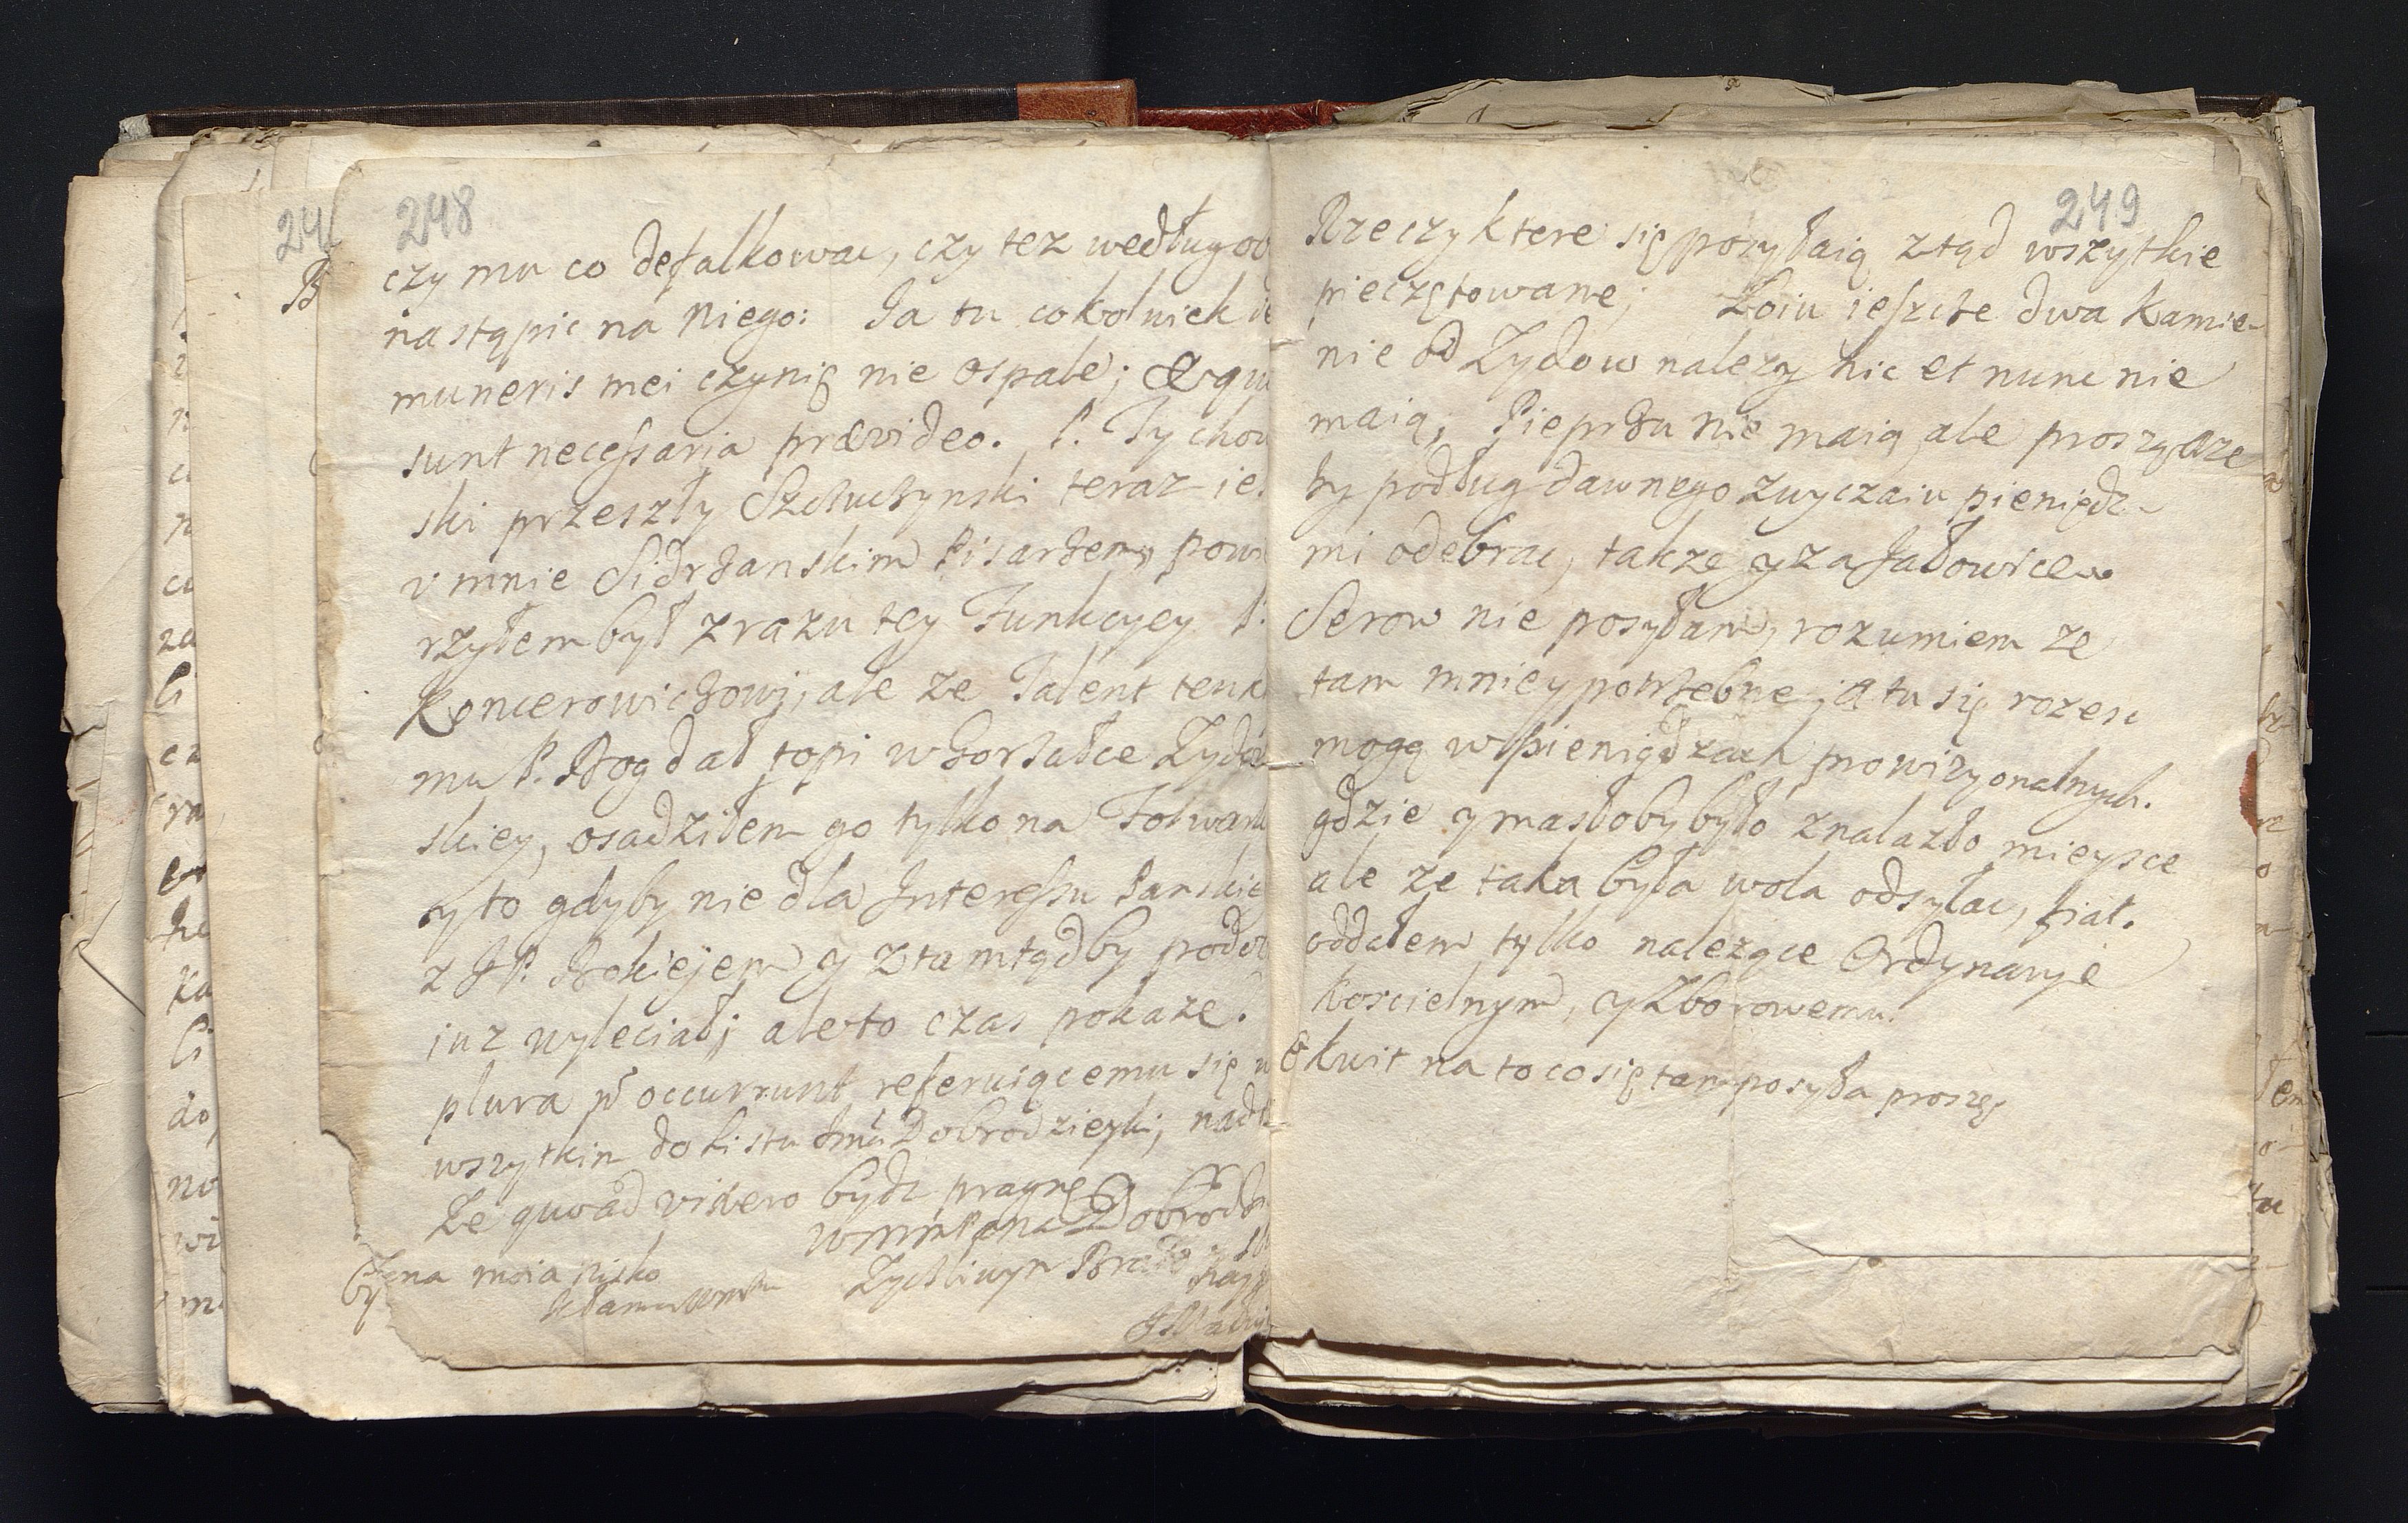 248
czy mu co defalkowac, czy tez według
nastąpic na niego: Ja tu cokolwiek
muneris mei czynię nie ospale; &
sunt necessaria prævideo. P. Tychow
ski przeszły Szczuczynski teraz
v mnie Sidrzanskim Pisarzem,
rzyłem był zrazu tey Funkcyey P.
Koncerowiczowi, ale ze Talent
mu P. Bog dał topi w Gorzałce
skiey, osadziłem go tylko na
y to gdyby nie dla Interessu
z JP. Bokiejem y ztamtądby
iuz wyleciał; ale to czas pokaze.
plura non occurrunt referuiącemu się
wszytkim do Listu Jmci Dobrodzieyki,
Ze quoad vixero bydz pragnę
WMM Pana Dobrodz
Zyczliwym Bratem
Zona moia nisko
249
Rzeczy ktere się posyłaią ztąd wszytkie
pieczętowane; Łoiu ieszcze dwa Kamie-
nie od Zydow nalezy hic et nunc nie
maią; Pieprzu nie maią ale proszą ze
by podług dawnego zwyczaiu pieniędz-
mi odebrac, takze y za Jałowice
Serow nie posyłam, rozumiem ze
tam mniey potrzebne; a tu się rozesc
mogą w pieniądzach prowizyonalnych.
gdzie y masłoby było znalazło mieysce
ale ze taka była wola odsyłac, fiat.
oddałem tylko nalezące Ordynarye
Koscielnym, y Zborowemu.
& Kwit na to co się tam posyła proszę